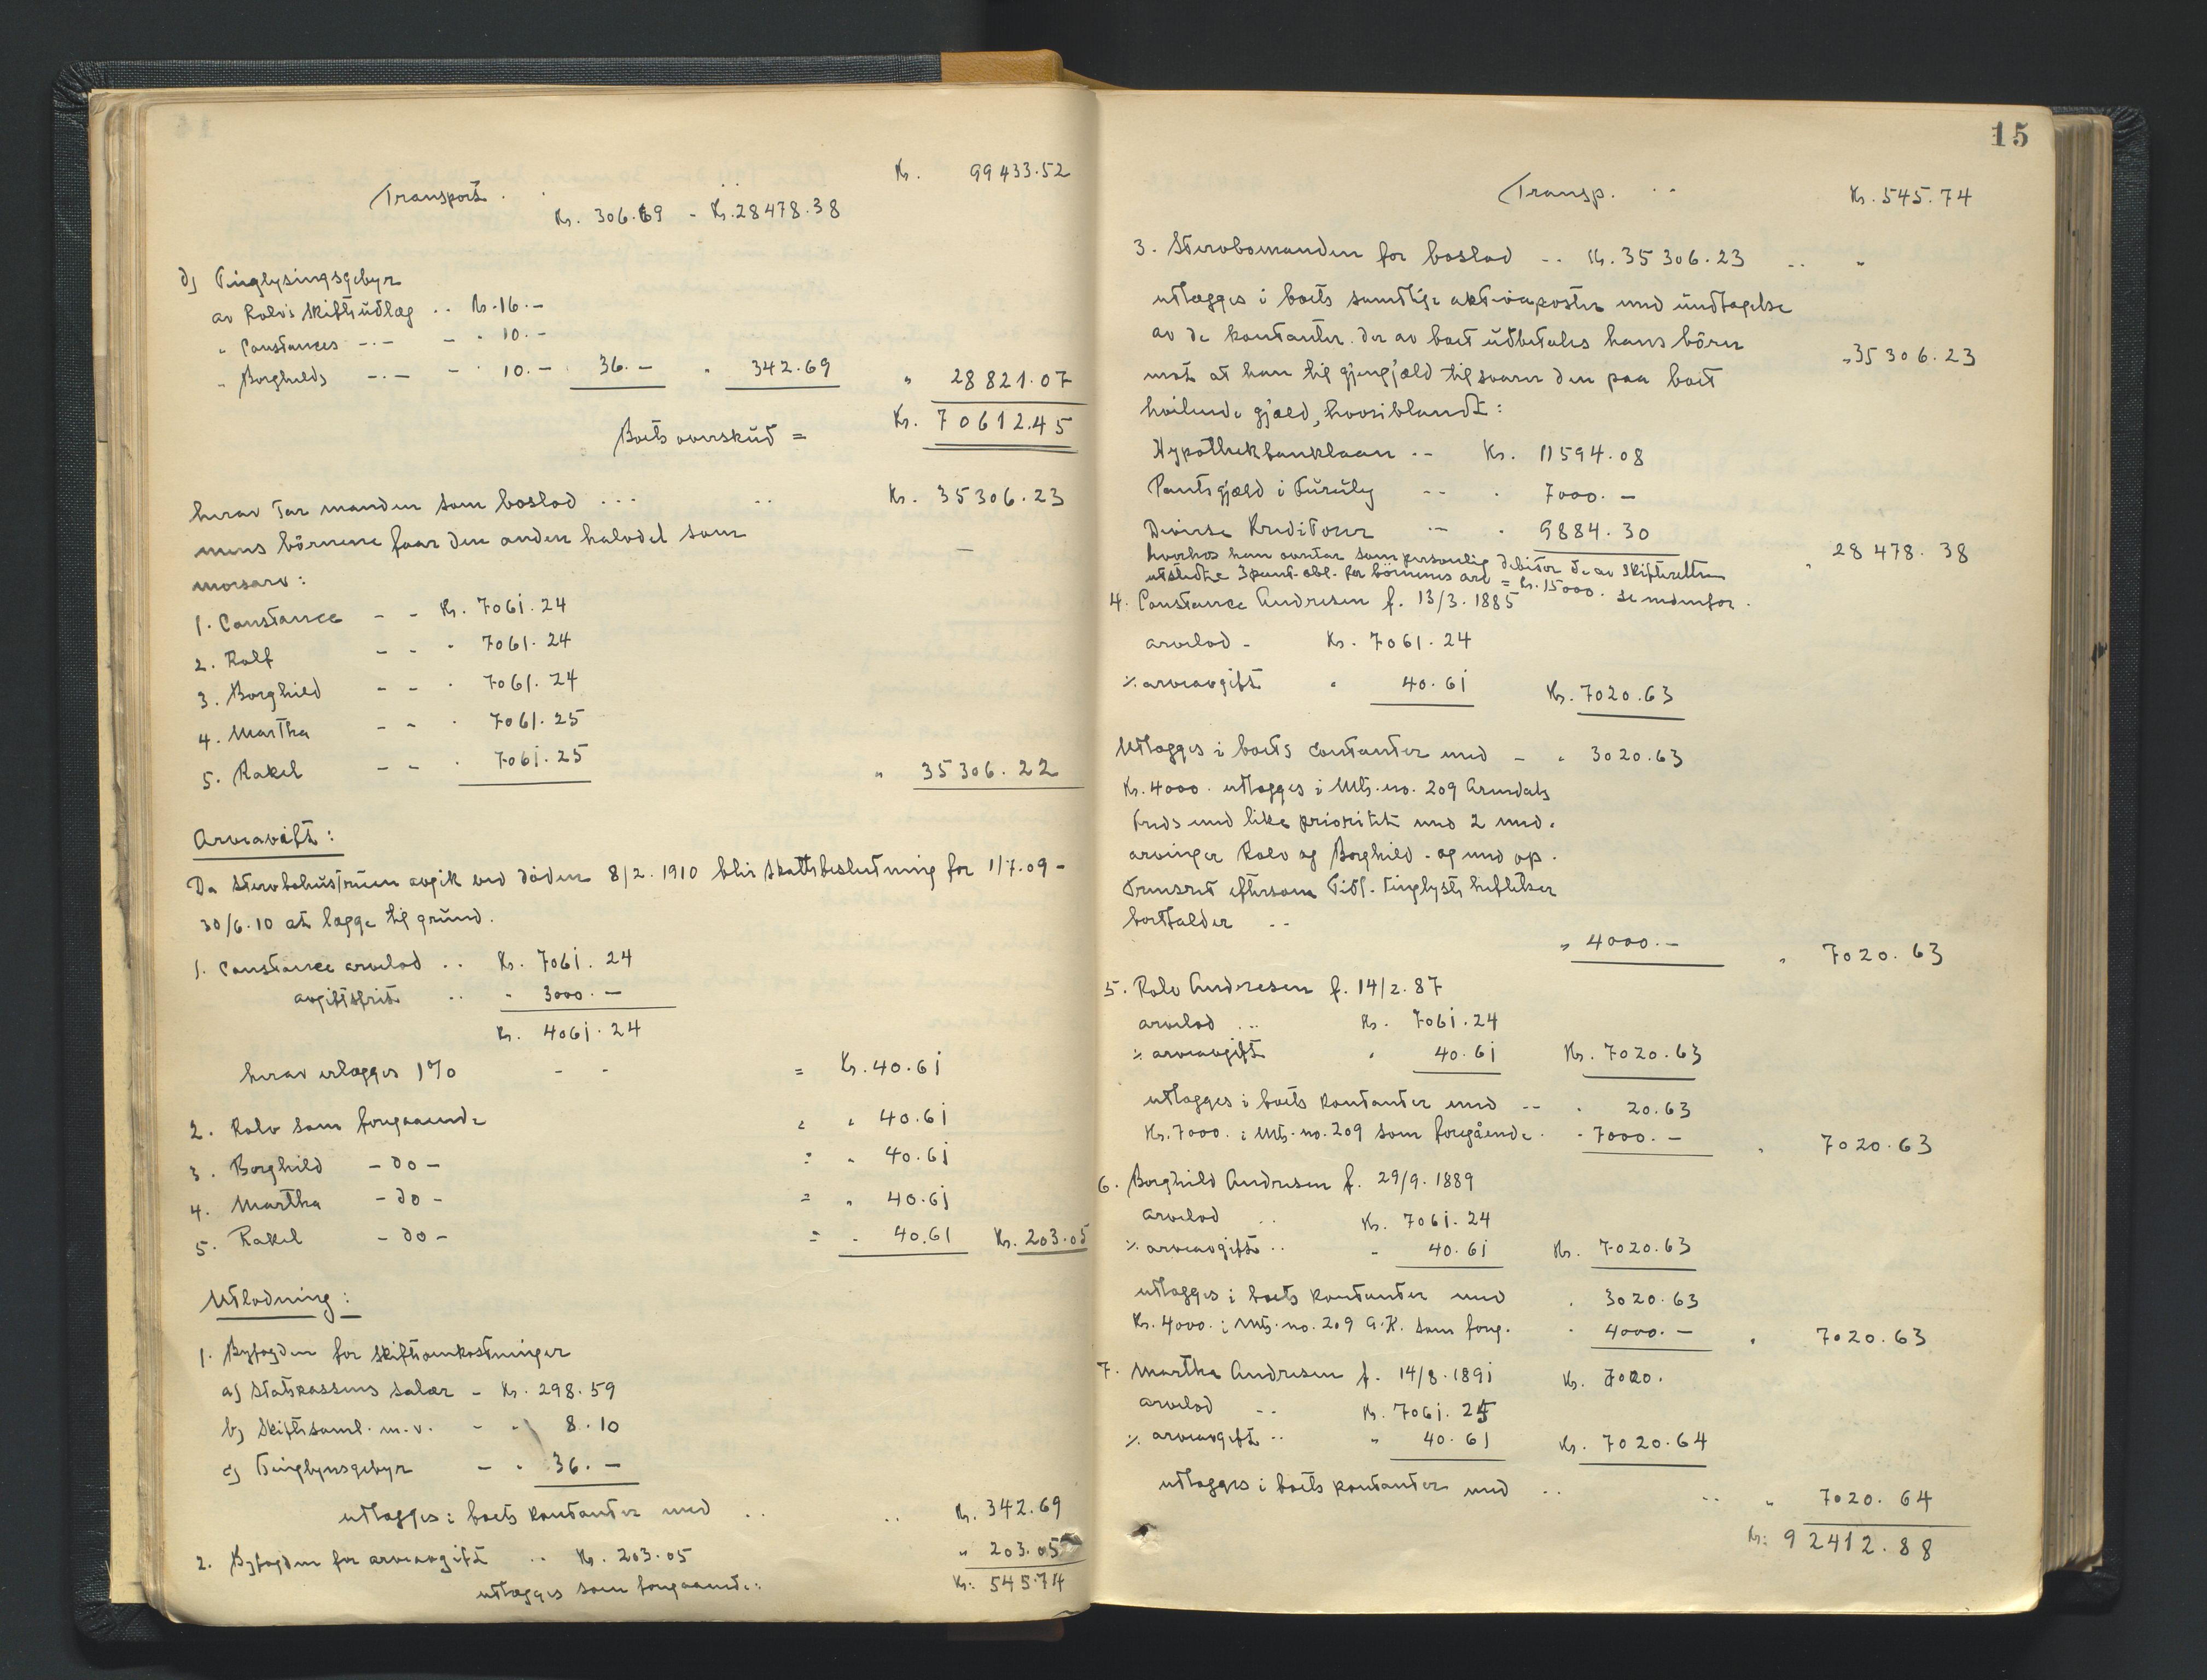 Kr. 99433.52
Transport . . ..
Kr. 306.69 - Kr. 28478.38
d) Tinglysingsgebyr
av Rolvs skifteudlæg .. Kr. 16.-
" Constances -.- - " 10.-
" Borghilds -.- - " 10.- 36.- " 342.69 " 28821.07
Boets overskud = Kr. 70612.45
herav tar manden som boslod ... .. Kr. 35306.23
mens börnene faar den anden halvdel som —
morsarv:
1. Constance - - Kr. 7061.24
2. Rolf - - " 7061.24
3. Borghild - - " 7061.24
4. Martha - - " 7061.25
5. Rakel - - " 7061.25 " 35306.22
Arveavift:
Da stervbohustruen avgik ved döden 8/2. 1910 blir skattebeslutning for 1/7.09 -
30/6.10 at lægge til grund.
1. Constance arvelod .. Kr. 7061.24
avgiftsfrit .. " 3000.—
Kr. 4061.24
herav erlægges 1% - - = Kr. 40.61
2. Rolv som foregaaende " " 40.61
3. Borghild - do - = " 40.61
4. Martha - do - = " 40.61
5. Rakel - do - = " 40.61 Kr. 203.05
Utlodning:
1. Byfogden for skifteomkostninger
a) Statskassens salær - Kr. 298.59
b) Skiftesaml. m.v. - " 8.10
c) Tinglysnsgebyr - " 36.—
utlægges i boets kontanter med .. .. Kr. 342.69
2. Byfogden for arveavgift .. Kr. 203.05 " 203.05
utlægges som foregaaende: Kr: 545.74
15
Transp. .. Kr. 545.74
3. Stervbomanden for boslod .. Kr. 35306.23 .. "
utlægges i boets samtlige aktivaposter med undtagelse
av de kontanter der av boet utbetales hans börn
mot at han til gjengjæld tilsvarer den paa boet "35306.23
hvilende gjæld, hvoriblandt:
Hypothekbanklaan .. Kr. 11594.08
Pantegjæld i Furuly .. " 7000.—
Diverse Kreditorer .. " 9884.30
hvorhos han overtar som personlig debitor de av skifteretten " 28478.38
utstedte 3 pant-obl. for börnenes arv = Kr. 15000. se nedenfor.
4. Constance Andresen f. 13/3. 1885
arvelod - Kr. 7061.24
% arveavgift " 40.61 Kr. 7020.63
Utlægges i boets contanter med - " 3020.63
Kr. 4000. utlægges i Mtr. no. 209 Arendals
Grds med like prioritet med 2 med-
arvinger Rolv og Borghild - og med op-
trinsret eftersom tidl. tinglyste heftelser
bortfalder .. " 4000.— " 7020.63
5. Rolv Andresen f. 14/2. 87
arvelod ... Kr. 7061.24
% arveavgift " 40.61 Kr. 7020.63
utlægges i boets kontanter med .. " 20.63
Kr. 7000. i Mtr. no. 209 som foregående. " 7000.— " 7020.63
6. Borghild Andresen f. 29/9. 1889
arvelod .. Kr. 7061.24
% arveavgift .. " 40.61 Kr. 7020.63
utlægges i boets kontanter med " 3020.63
Kr. 4000. i Mtr. no. 209 A.K. som foreg. " 4000.— " 7020.63
7. Martha Andresen f. 14/8. 1891 Kr. 7020.
arvelod .. Kr. 7061.25
% arveavgift .. " 40.61 Kr. 7020.64
utlægges i boets kontanter med .. .. " 7020.64
Kr: 92412.88